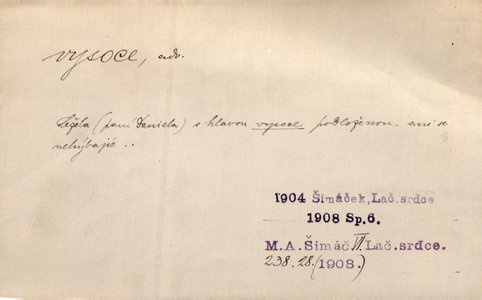 vysoce, adv.
Ležela (paní Daniela) s hlavou vysoce podloženou, ani se
nehýbajíc ..
1904 Šimáček, Lač. srdce
1908 Sp. 6.
M. A. Šimáč VI. Lač. srdce.
238. 28. (1908.)